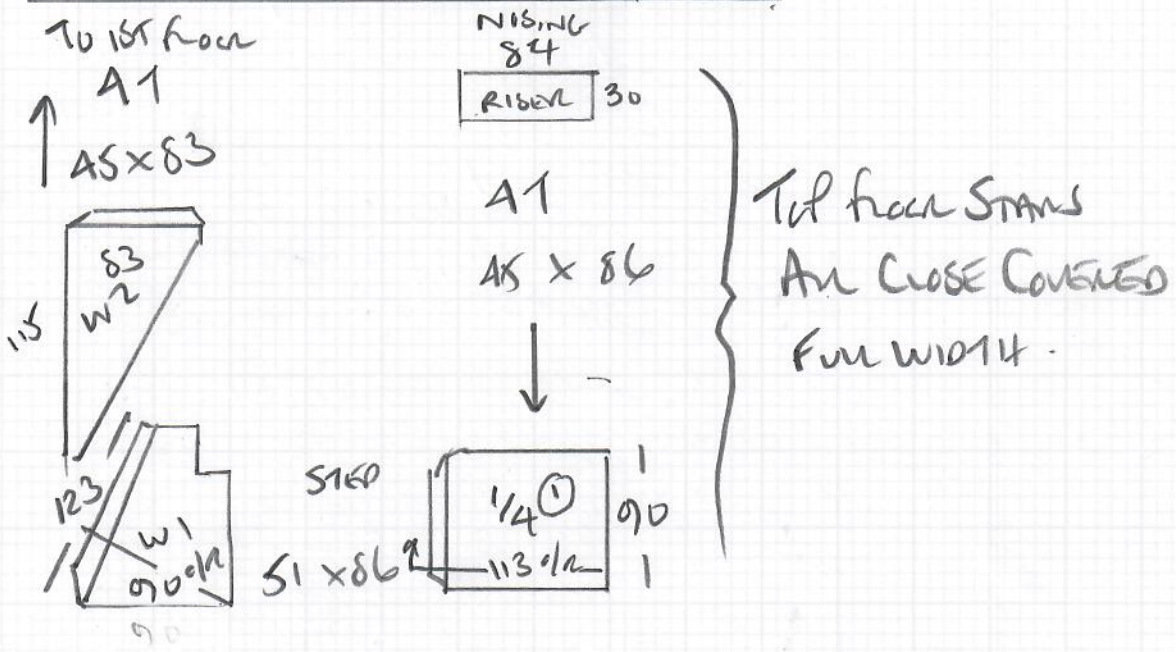 To 1ST floor
4T
45 x 83
83
W2
115
123
W1
90 o/r
90
NOSING
84
RISER 30
4T
45 x 86
STEP
51 x 86
1/4 ①
113 o/r
1
90
1
Top floor STAIRS
All CLOSE COVERED
Full WIDTH.